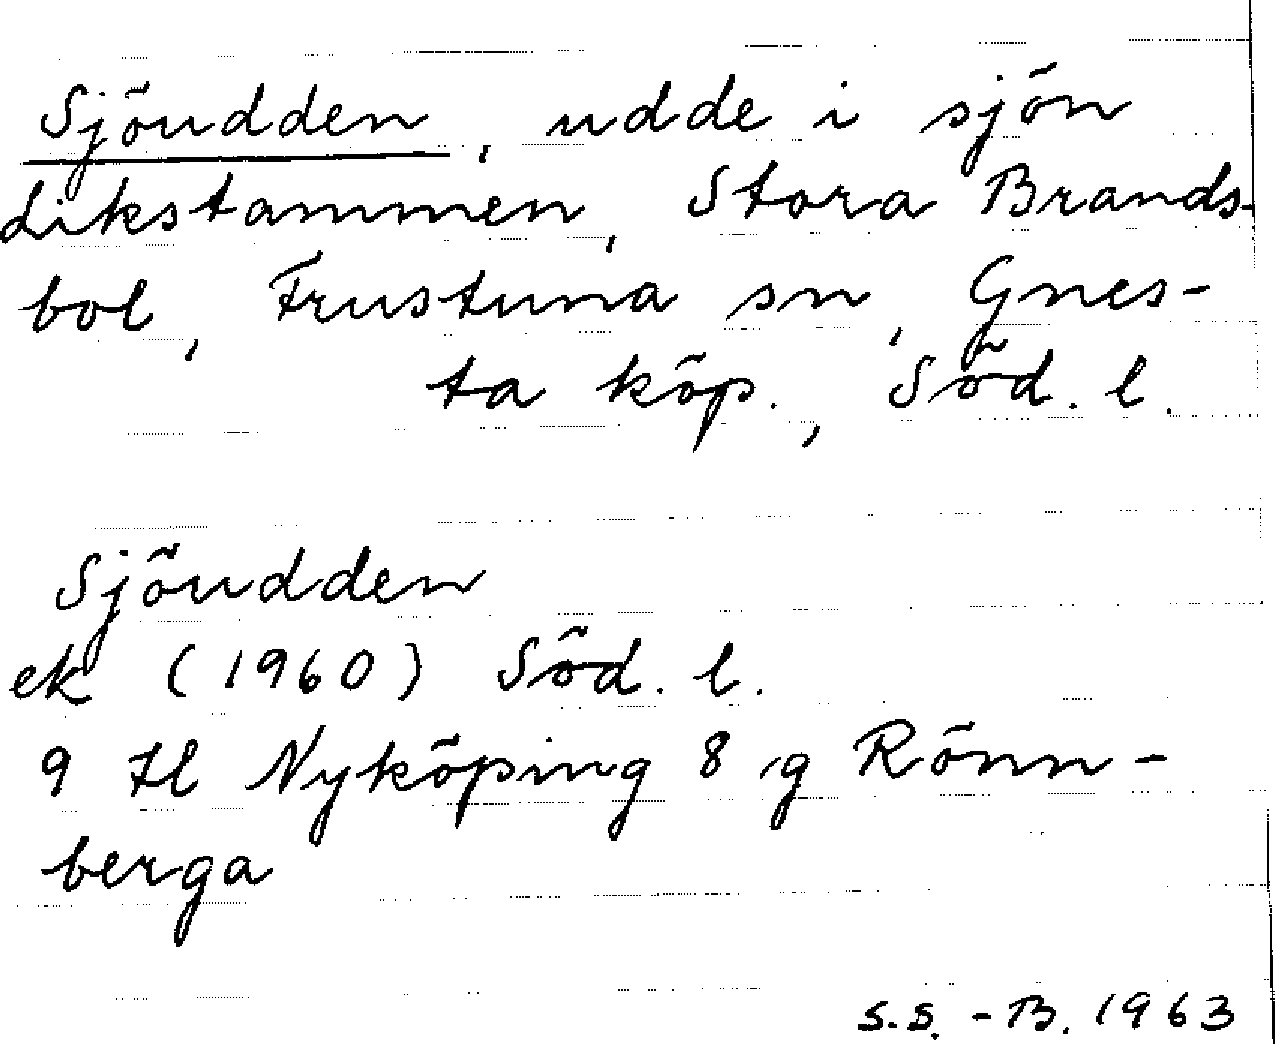 Sjöudden, udde i sjön
Likstammen, Stora Brands-
bol, Frustuna sn, Gnes-
ta köp., Söd. l.
Sjöudden
ek (1960) Söd. l.
9 H l Nyköping 8 g Rönn-
berga
S.S.-B. 1963